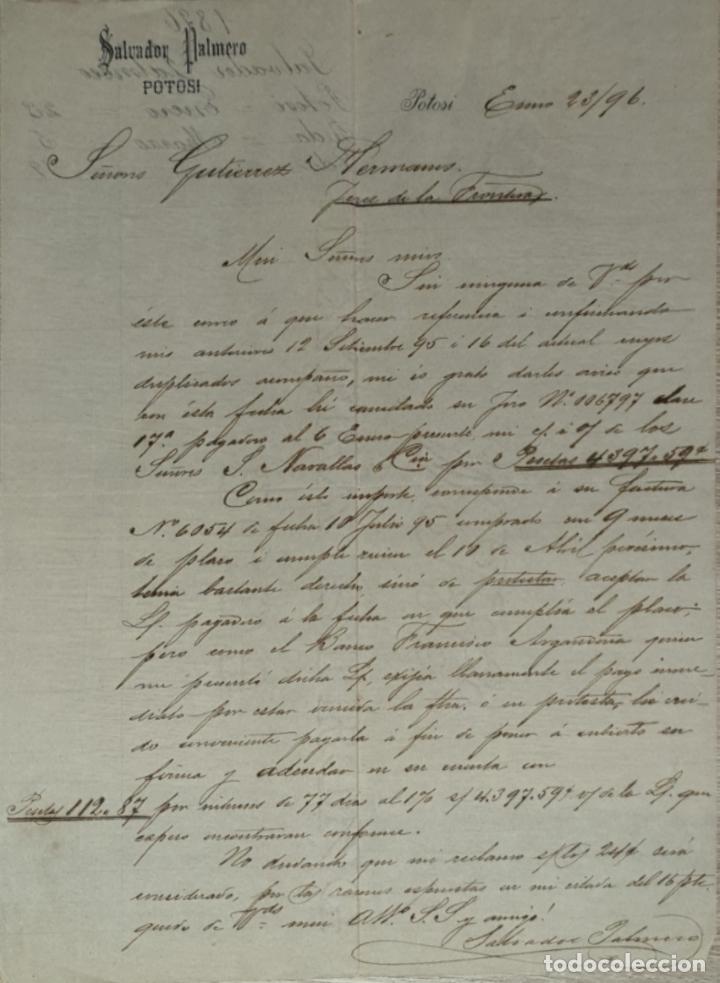 Salvador Palmero
POTOSI
Potosí Enero 23/96.
Señores Gutierrez Hermanos.
Jerez de la Frontera.
Muy Señores mios.
Sin ninguna de Vds por
éste correo á que hacer referencia i confirmando
mis anteriores 12 Setiembre 95 i 16 del actual cuyos
duplicados acompaño, mi es grato darles aviso que
con ésta fecha hé cancelado su Jiro Nº 106797 clase
17ª pagadero al 6 Enero presente, mi c/. i o/ de los
Señores S. Navallas & Cia por Pesetas 4397.59
Como éste importe, corresponde á su factura
Nº 6054 de fecha 10 Julio 95 comprado con 9 meses
de plazo i cumple recien el 10 de Abril próximo,
tenia bastante derecho, sinó de protestar, aceptar la
L/. pagadero á la fecha en que cumplía el plazo;
pero como el Banco Francisco Argandoña quien
me presentó dicha L/. exijia llanamente el pago inme-
diato por estar vencida la ó su protesta, hé crei-
do conveniente pagarla á fin de poner á cubierto su
firma y adeudar en su cuenta con
Pesetas 112.87 por intereses de 77 dias al 1% s/ 4.397.59 v/ de la L/. que
espero encontraran conforme.
No dudando que mi reclamo será
considerado, por las razones espuestas en mi citada del 16 pte
quedo de Vds muy S.S y amigo!
Salvador Palmero
todocoleccion.net